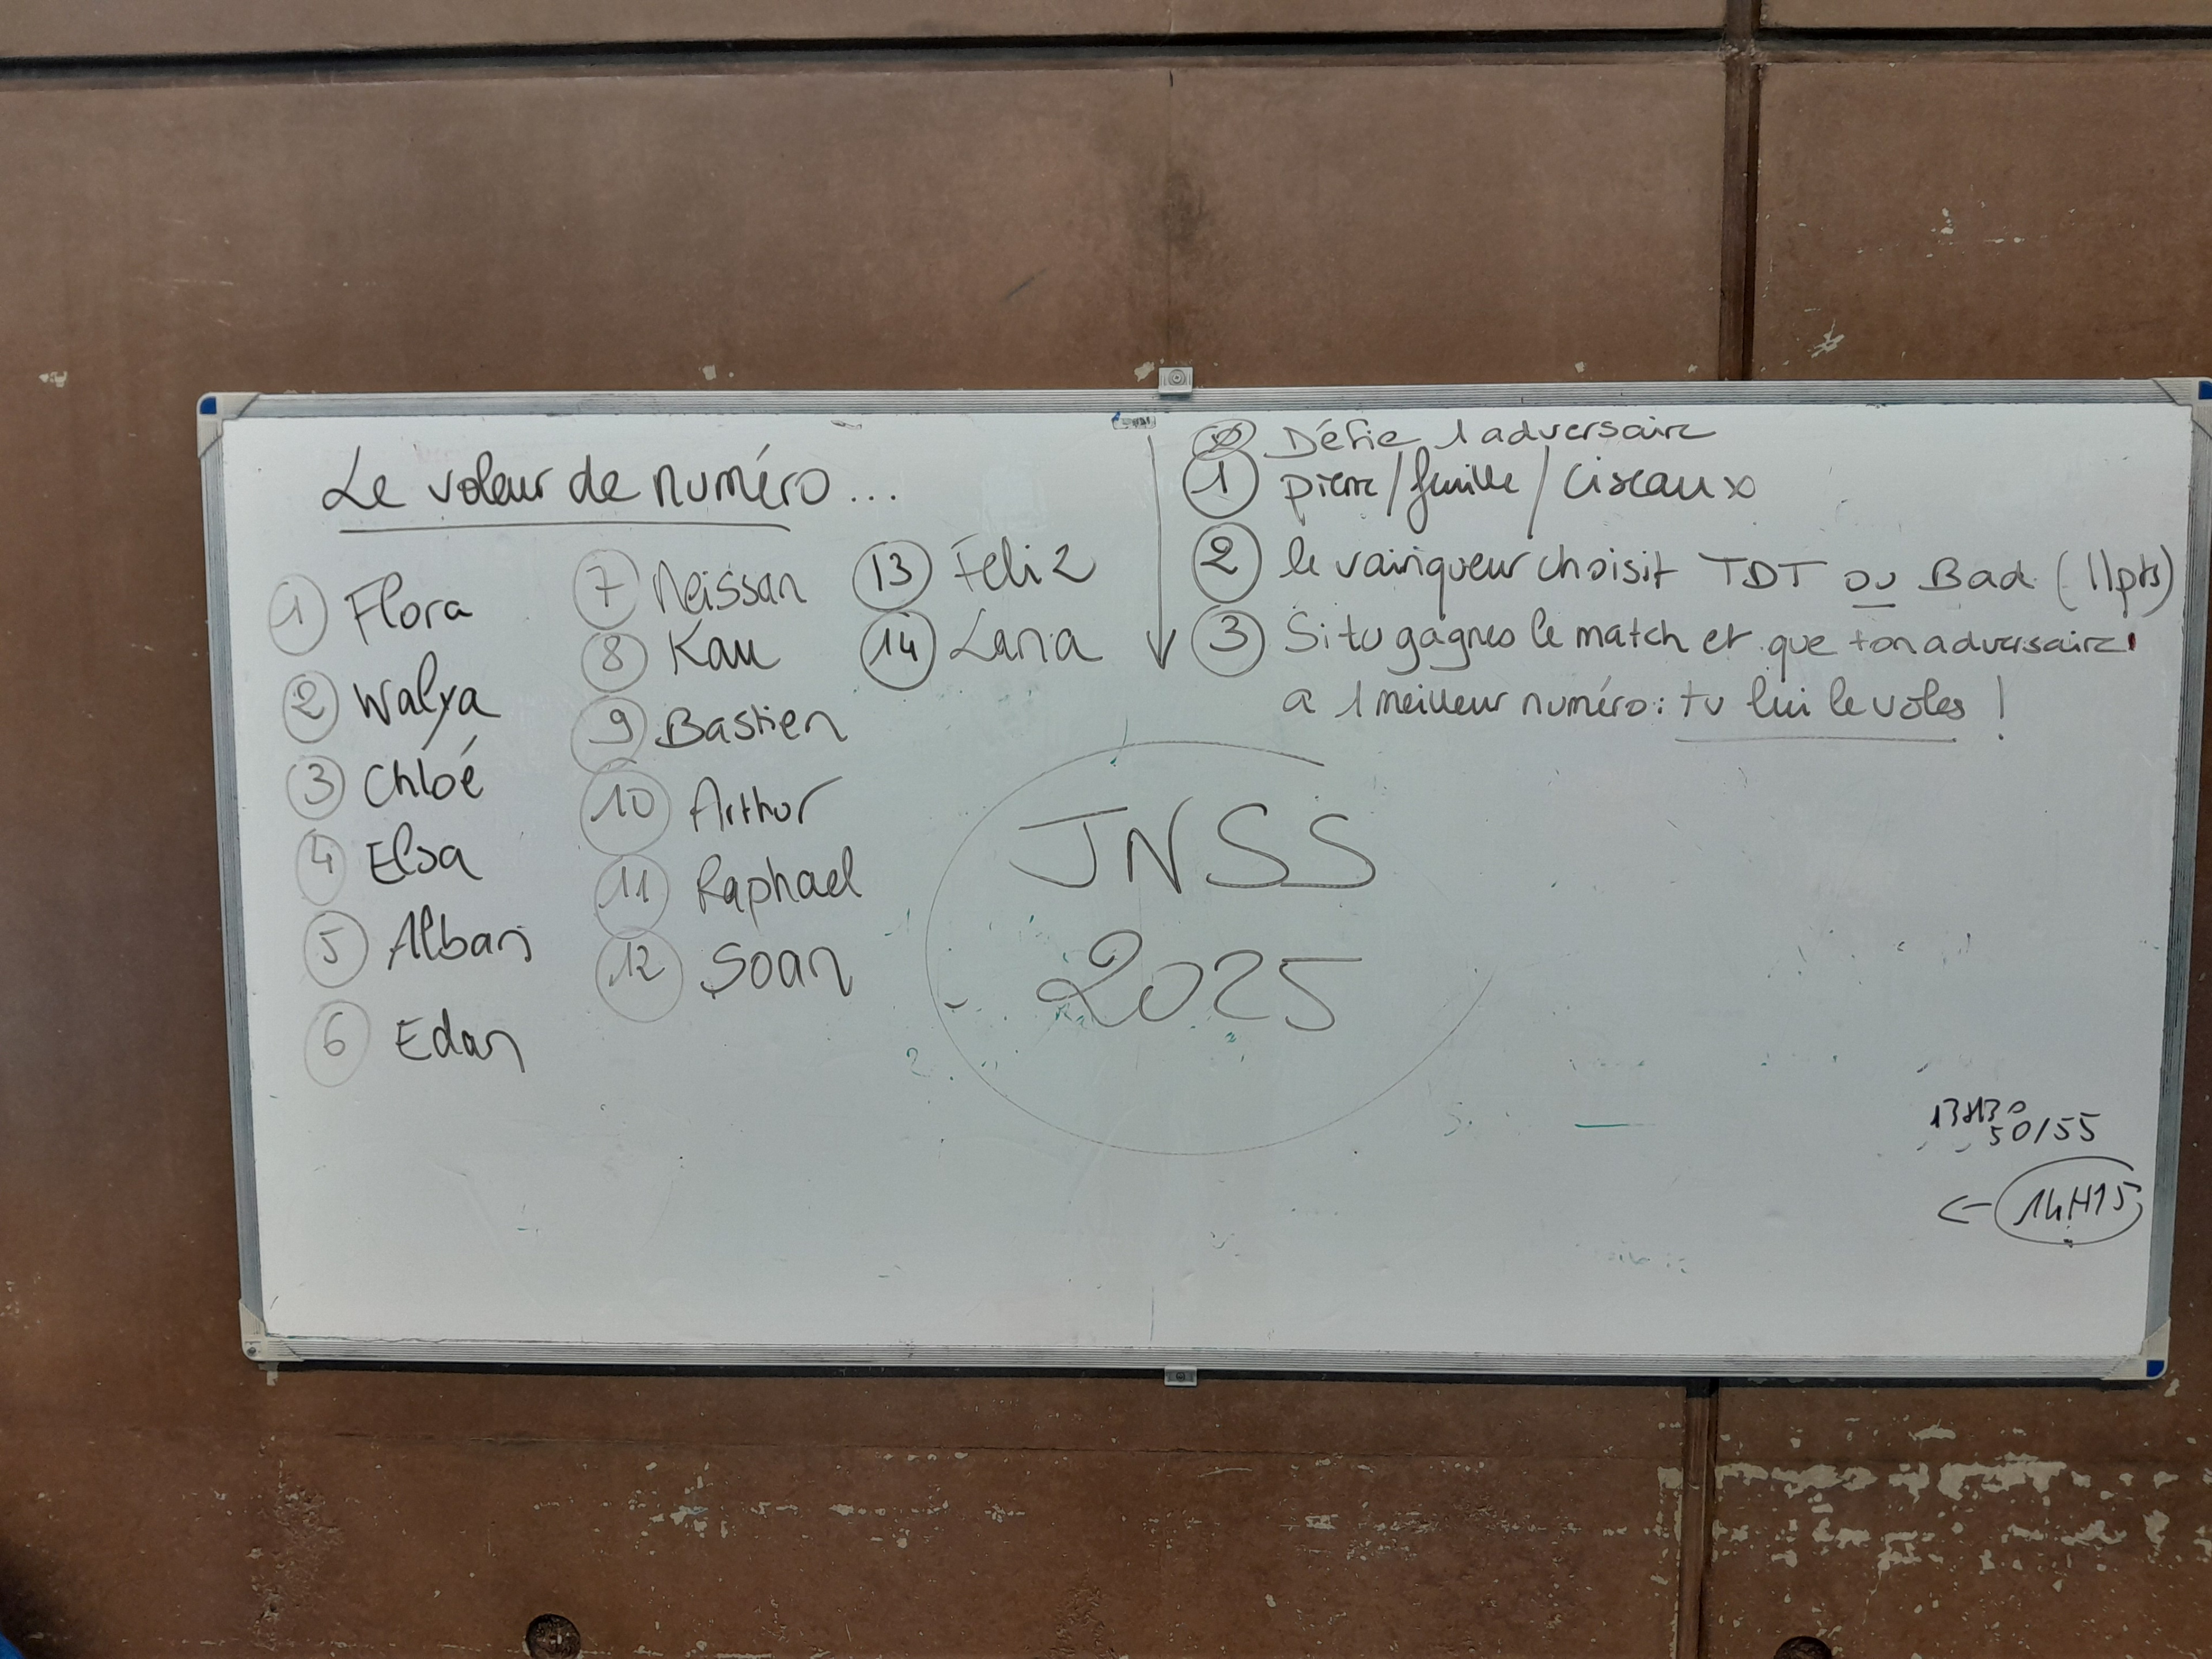 Le voleur de numéro...
1 Flora
2 Walya
3 Chloé
4 Elsa
5 Alban
6 Edan
7 Neissan
8 Kau
9 Bastien
10 Arthur
11 Raphael
12 Soan
13 Feliz
14 Lana
Défie 1 adversaire
1 pierre/feuille/ciseaux
2 le vainqueur choisit TDT ou Bad (11pts)
3 Si tu gagnes le match et que ton adversaire
a 1 meilleur numéro: tu lui le voles !
JNSS
2025
13H30
50/55
<- 14H15